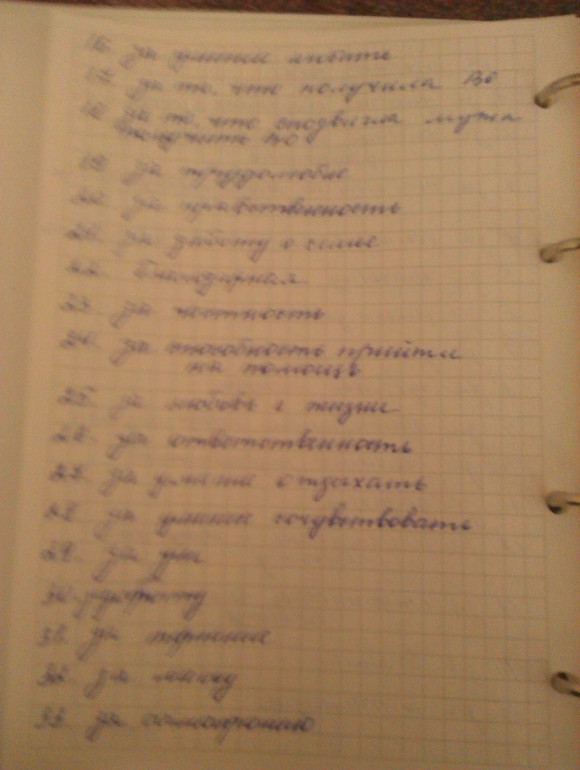 16. за умение любить
17. за то, что получила ВО
18. за то, что сподвигла мужа
получить ВО
19. за трудолюбие
20. за нравственность
21. за заботу о семье
22. благодарная
23. за честность
24. за способность прийти
на помощь
25. за любовь к жизни
26. за ответственность
27. за умение отдыхать
28. за умение сочувствовать
29. за ум
30. за
31. за терпение
32. за
33. за